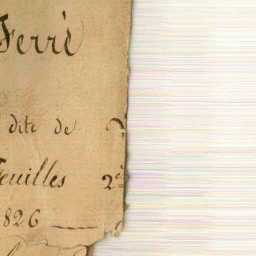 Ferri
dite de
feuilles 2e
1826